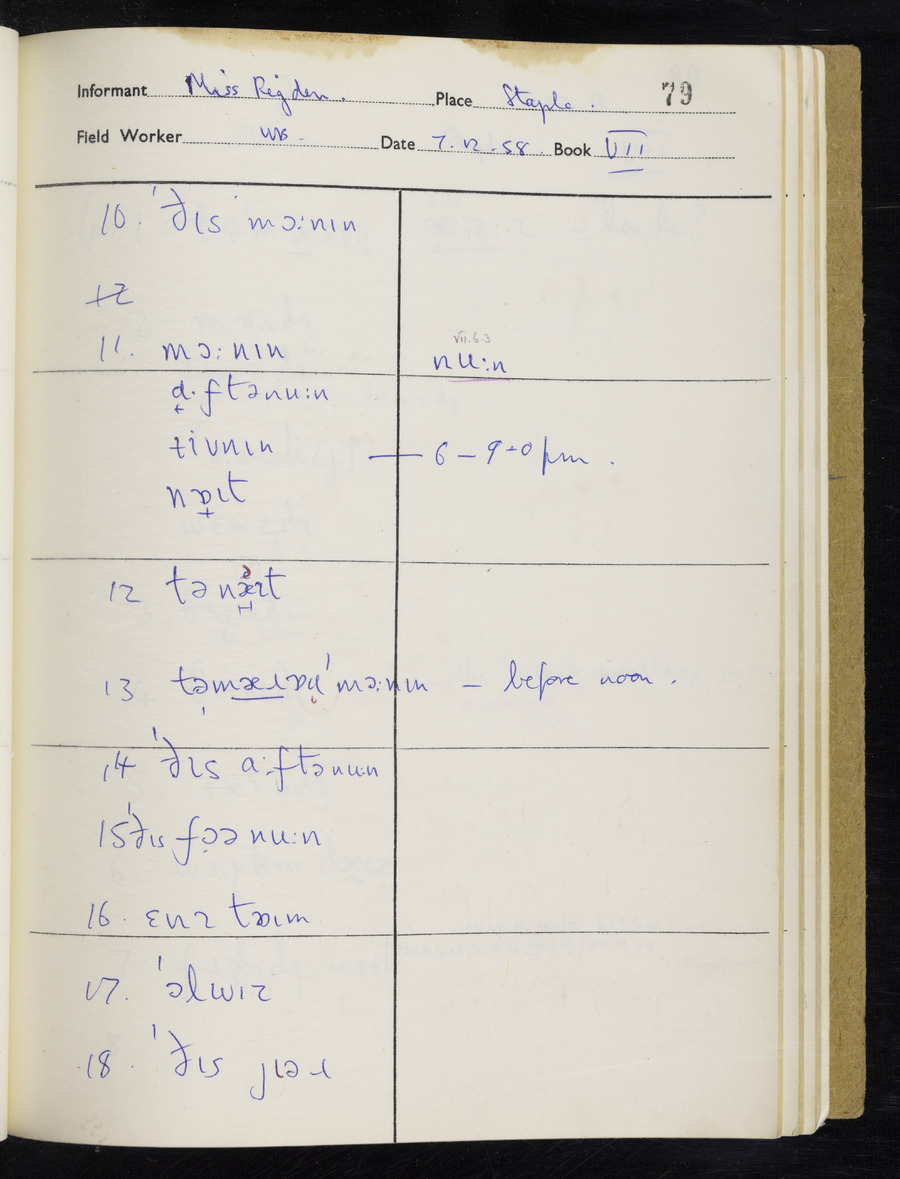 Informant Miss Rigden. Place Staple. 79
Field Worker WB. Date 7.12.58. Book VII
10. ˈðɪs mɔ:nɪn
11. mɔ:nɪn
VII.6.3
nu:n
ɑ̟·ftənu:n
ɪivnɪn — 6 – 9-0 pm.
nɒ̟ɪt
12 tə
13 ˈmɔ:nɪn – before noon.
14 ˈðɪs ɑ:ftənu:n
15 ˈðɪs fɔ̣ənu:n
16. ɛnɪ tɒɪm
17. ˈɔlwɪz
18. ˈðɪs jɪəɹ